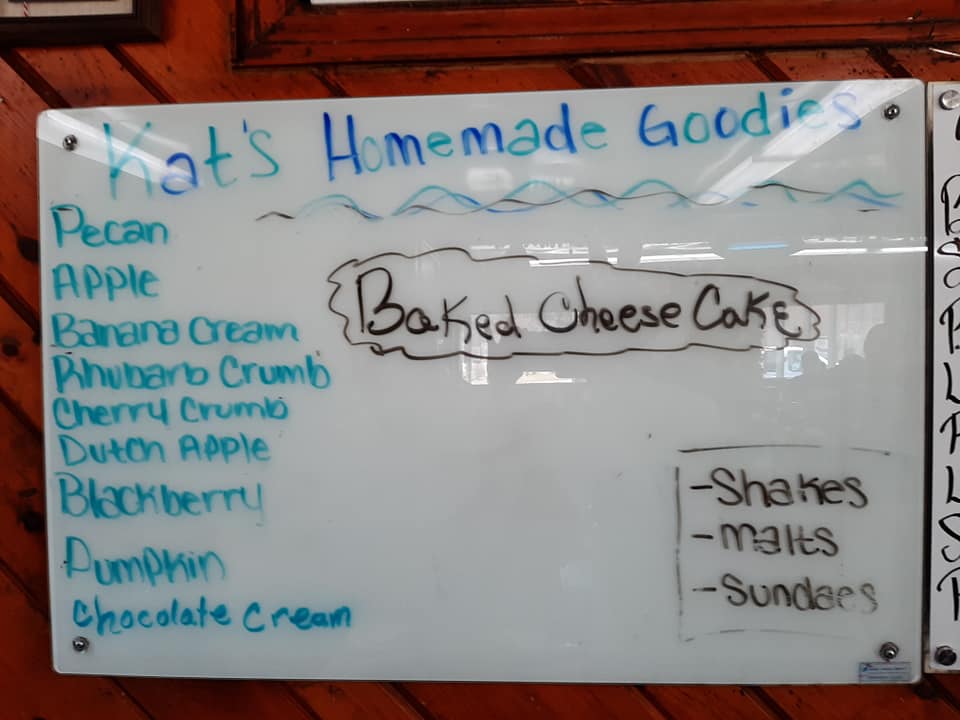 Kat's Homemade Goodies
Pecan
Apple
Banana Cream
Rhubarb Crumb
Cherry Crumb
Dutch Apple
Blackberry
Pumpkin
Chocolate Cream
Baked Cheese Cake
-Shakes
-Malts
-Sundaes